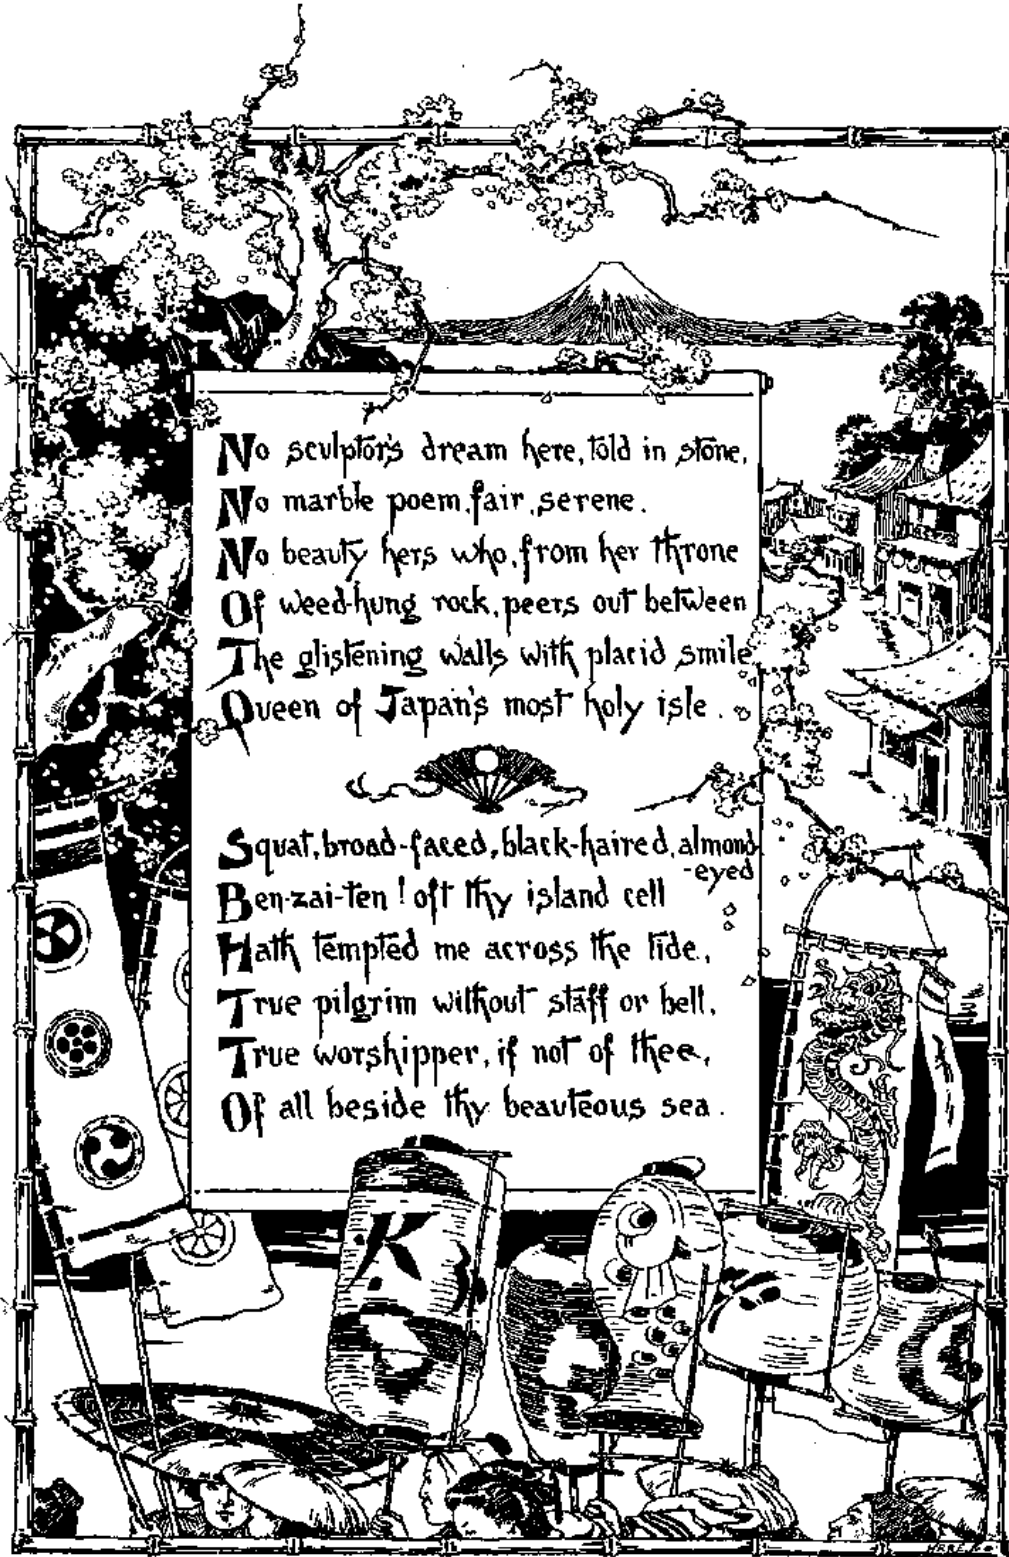 No sculptor's dream here, told in stone,
No marble poem, fair, serene.
No beauty hers who, from her throne
Of weed-hung rock, peers out between
The glistening walls with placid smile
Queen of Japan's most holy isle.
Squat, broad-faced, black-haired, almond
-eyed
Ben-zai-ten! oft thy island cell
Hath tempted me across the tide,
True pilgrim without staff or bell,
True worshipper, if not of thee,
Of all beside thy beauteous sea.